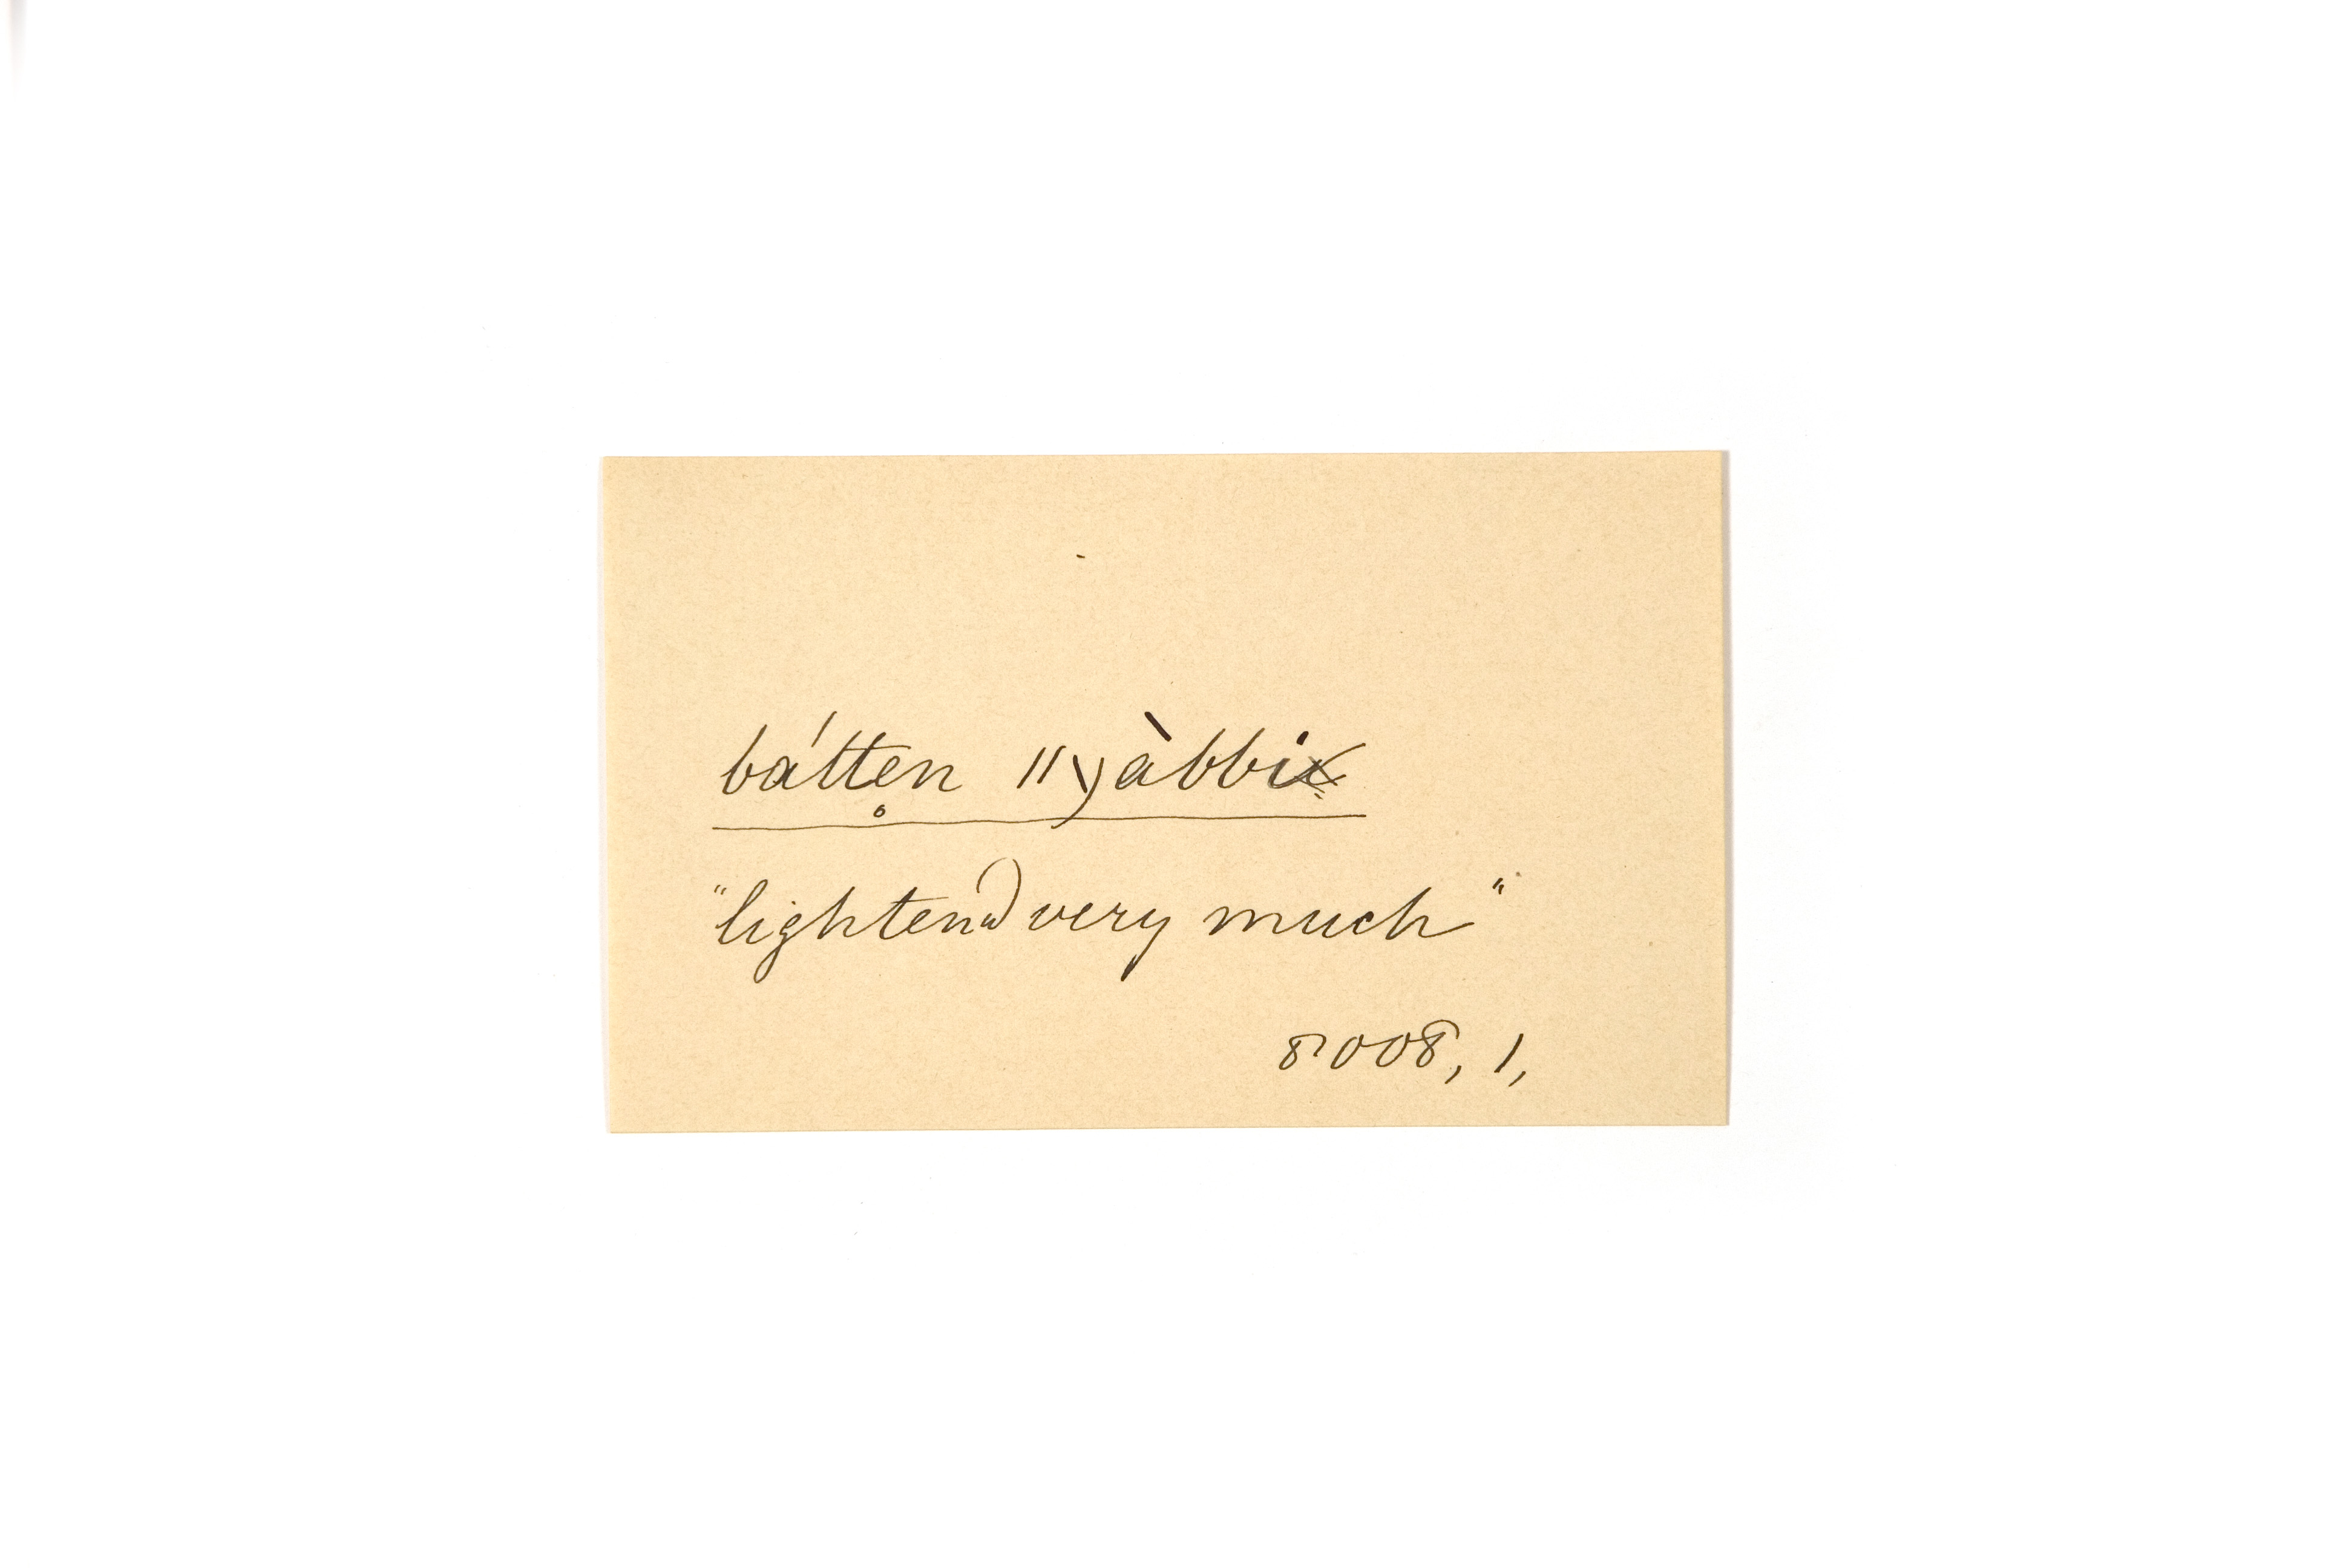 bátte̥n ǁyàbbi
"lightend very much"
8008, 1,